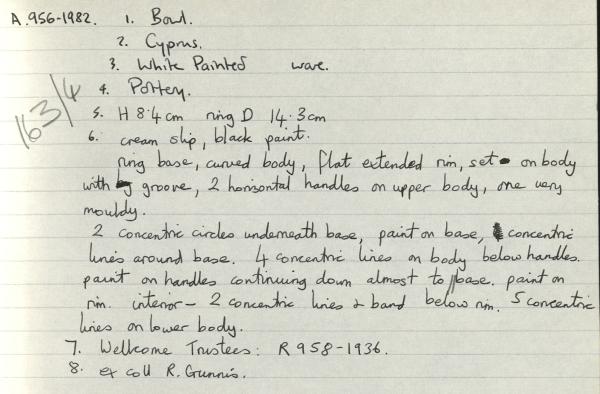 A.956-1982. 1. Bowl.
2. Cyprus.
3. White Painted ware.
4. Pottery.
163/4
5. H 8.4cm ring D 14.3cm
6. cream slip, black paint.
ring base, curved body, flat extended rim, set on body
with groove, 2 horizontal handles on upper body, one very
mouldy.
2 concentric circles underneath base, paint on base, concentric
lines around base. 4 concentric lines on body below handles.
paint on handles continuing down almost to base. paint on
rim. interior - 2 concentric lines & band below rim. 5 concentric
lines on lower body.
7. Wellcome Trustees: R 958-1936.
8. ex coll R. Gunnis.